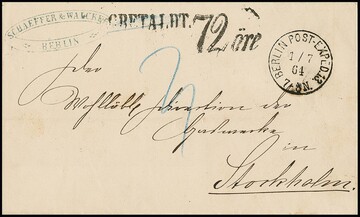 SCHAEFFER & WALCKER
BERLIN
CRETALDT.
72 öre
BERLIN POST-EXPED. 13.
1/7
64
7-8 N.
Der
Wohllöbl. Direction der
Gaswerke
in
Stockholm.